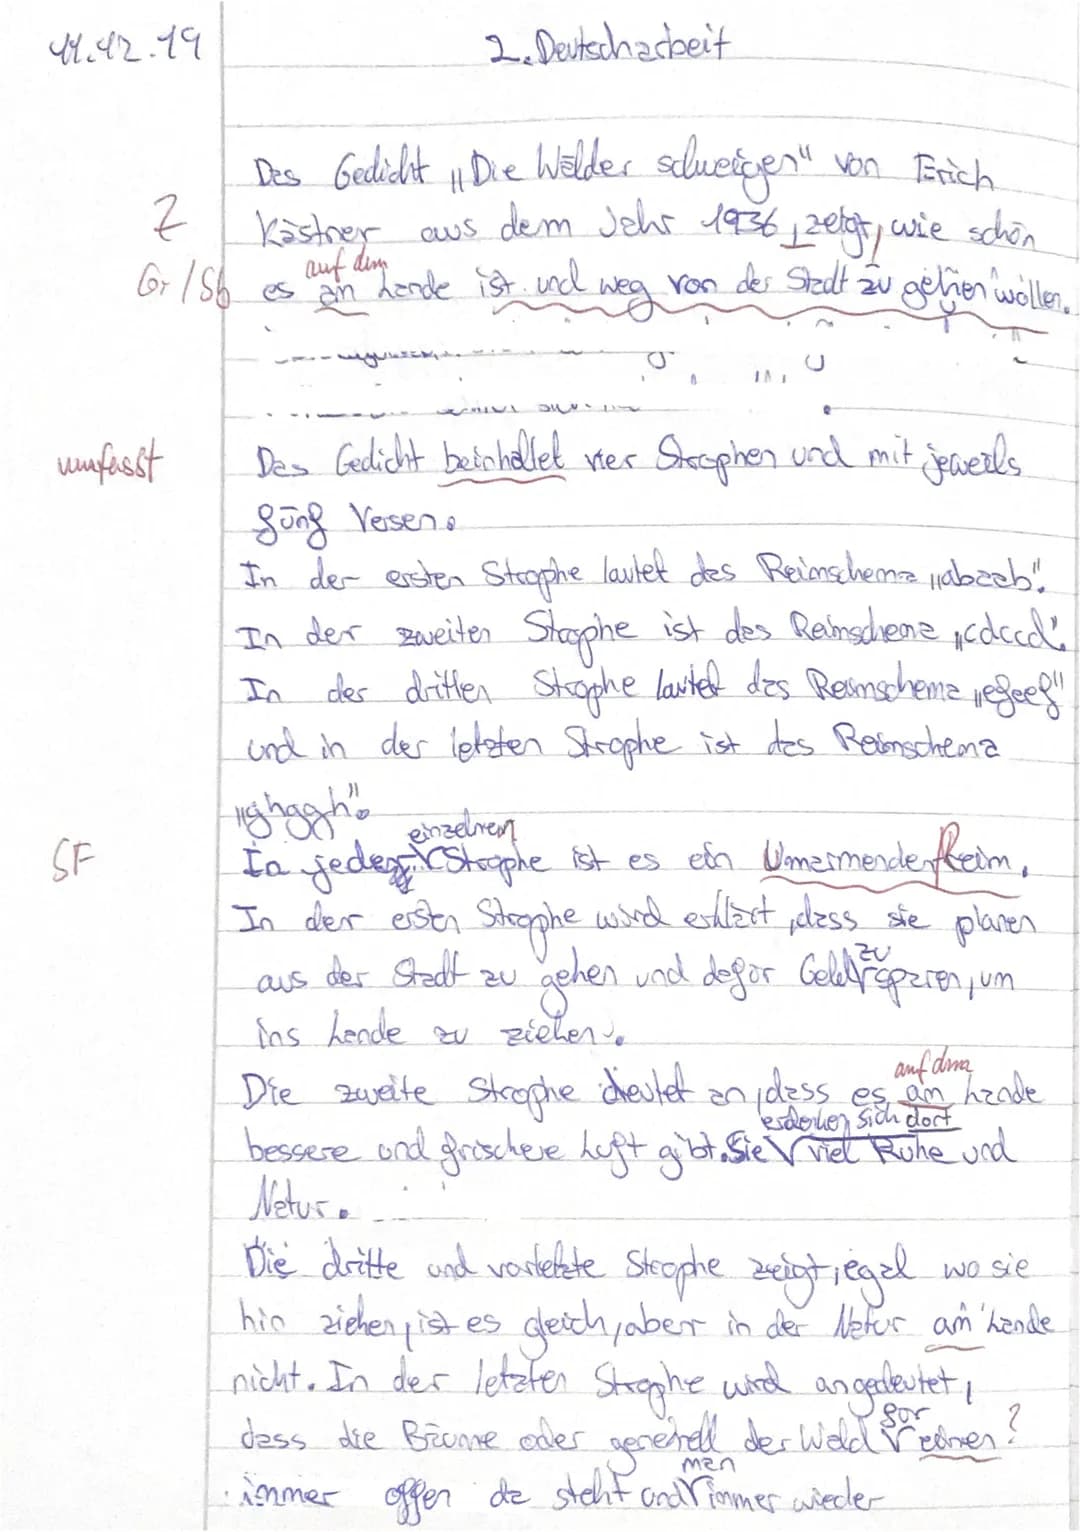 11.12.19 2. Deutscharbeit
Das Gedicht „Die Wälder schweigen" von Erich
Z Kästner aus dem Jahr 1936, zeigt, wie schön
auf dem
Gr/Sb es am Lande ist und weg von der Stadt zu gehen wollen.
umfasst Das Gedicht beinhaltet vier Strophen und mit jeweils
fünf Versen.
In der ersten Strophe lautet das Reimschema „abaab".
In der zweiten Strophe ist das Reimschema „cdccd".
In der dritten Strophe lautet das Reimschema „efeef"
und in der letzten Strophe ist das Reimschema
„ghggh".
einzelnen
SF In jeder Strophe ist es ein Umarmender Reim.
In der ersten Strophe wird erklärt, dass sie planen
zu
aus der Stadt zu gehen und dafür Geld sparen, um
ins Lande zu ziehen.
auf dem
Die zweite Strophe deutet an, dass es am Lande
erdenken sich dort
bessere und frischere Luft gibt. Sie viel Ruhe und
Natur.
Die dritte und vorletzte Strophe zeigt, egal wo sie
hin ziehen, ist es gleich, aber in der Natur am Lande
nicht. In der letzten Strophe wird angedeutet,
für ?
dass die Bäume oder generell der Wald einen
man
immer offen da steht und immer wieder